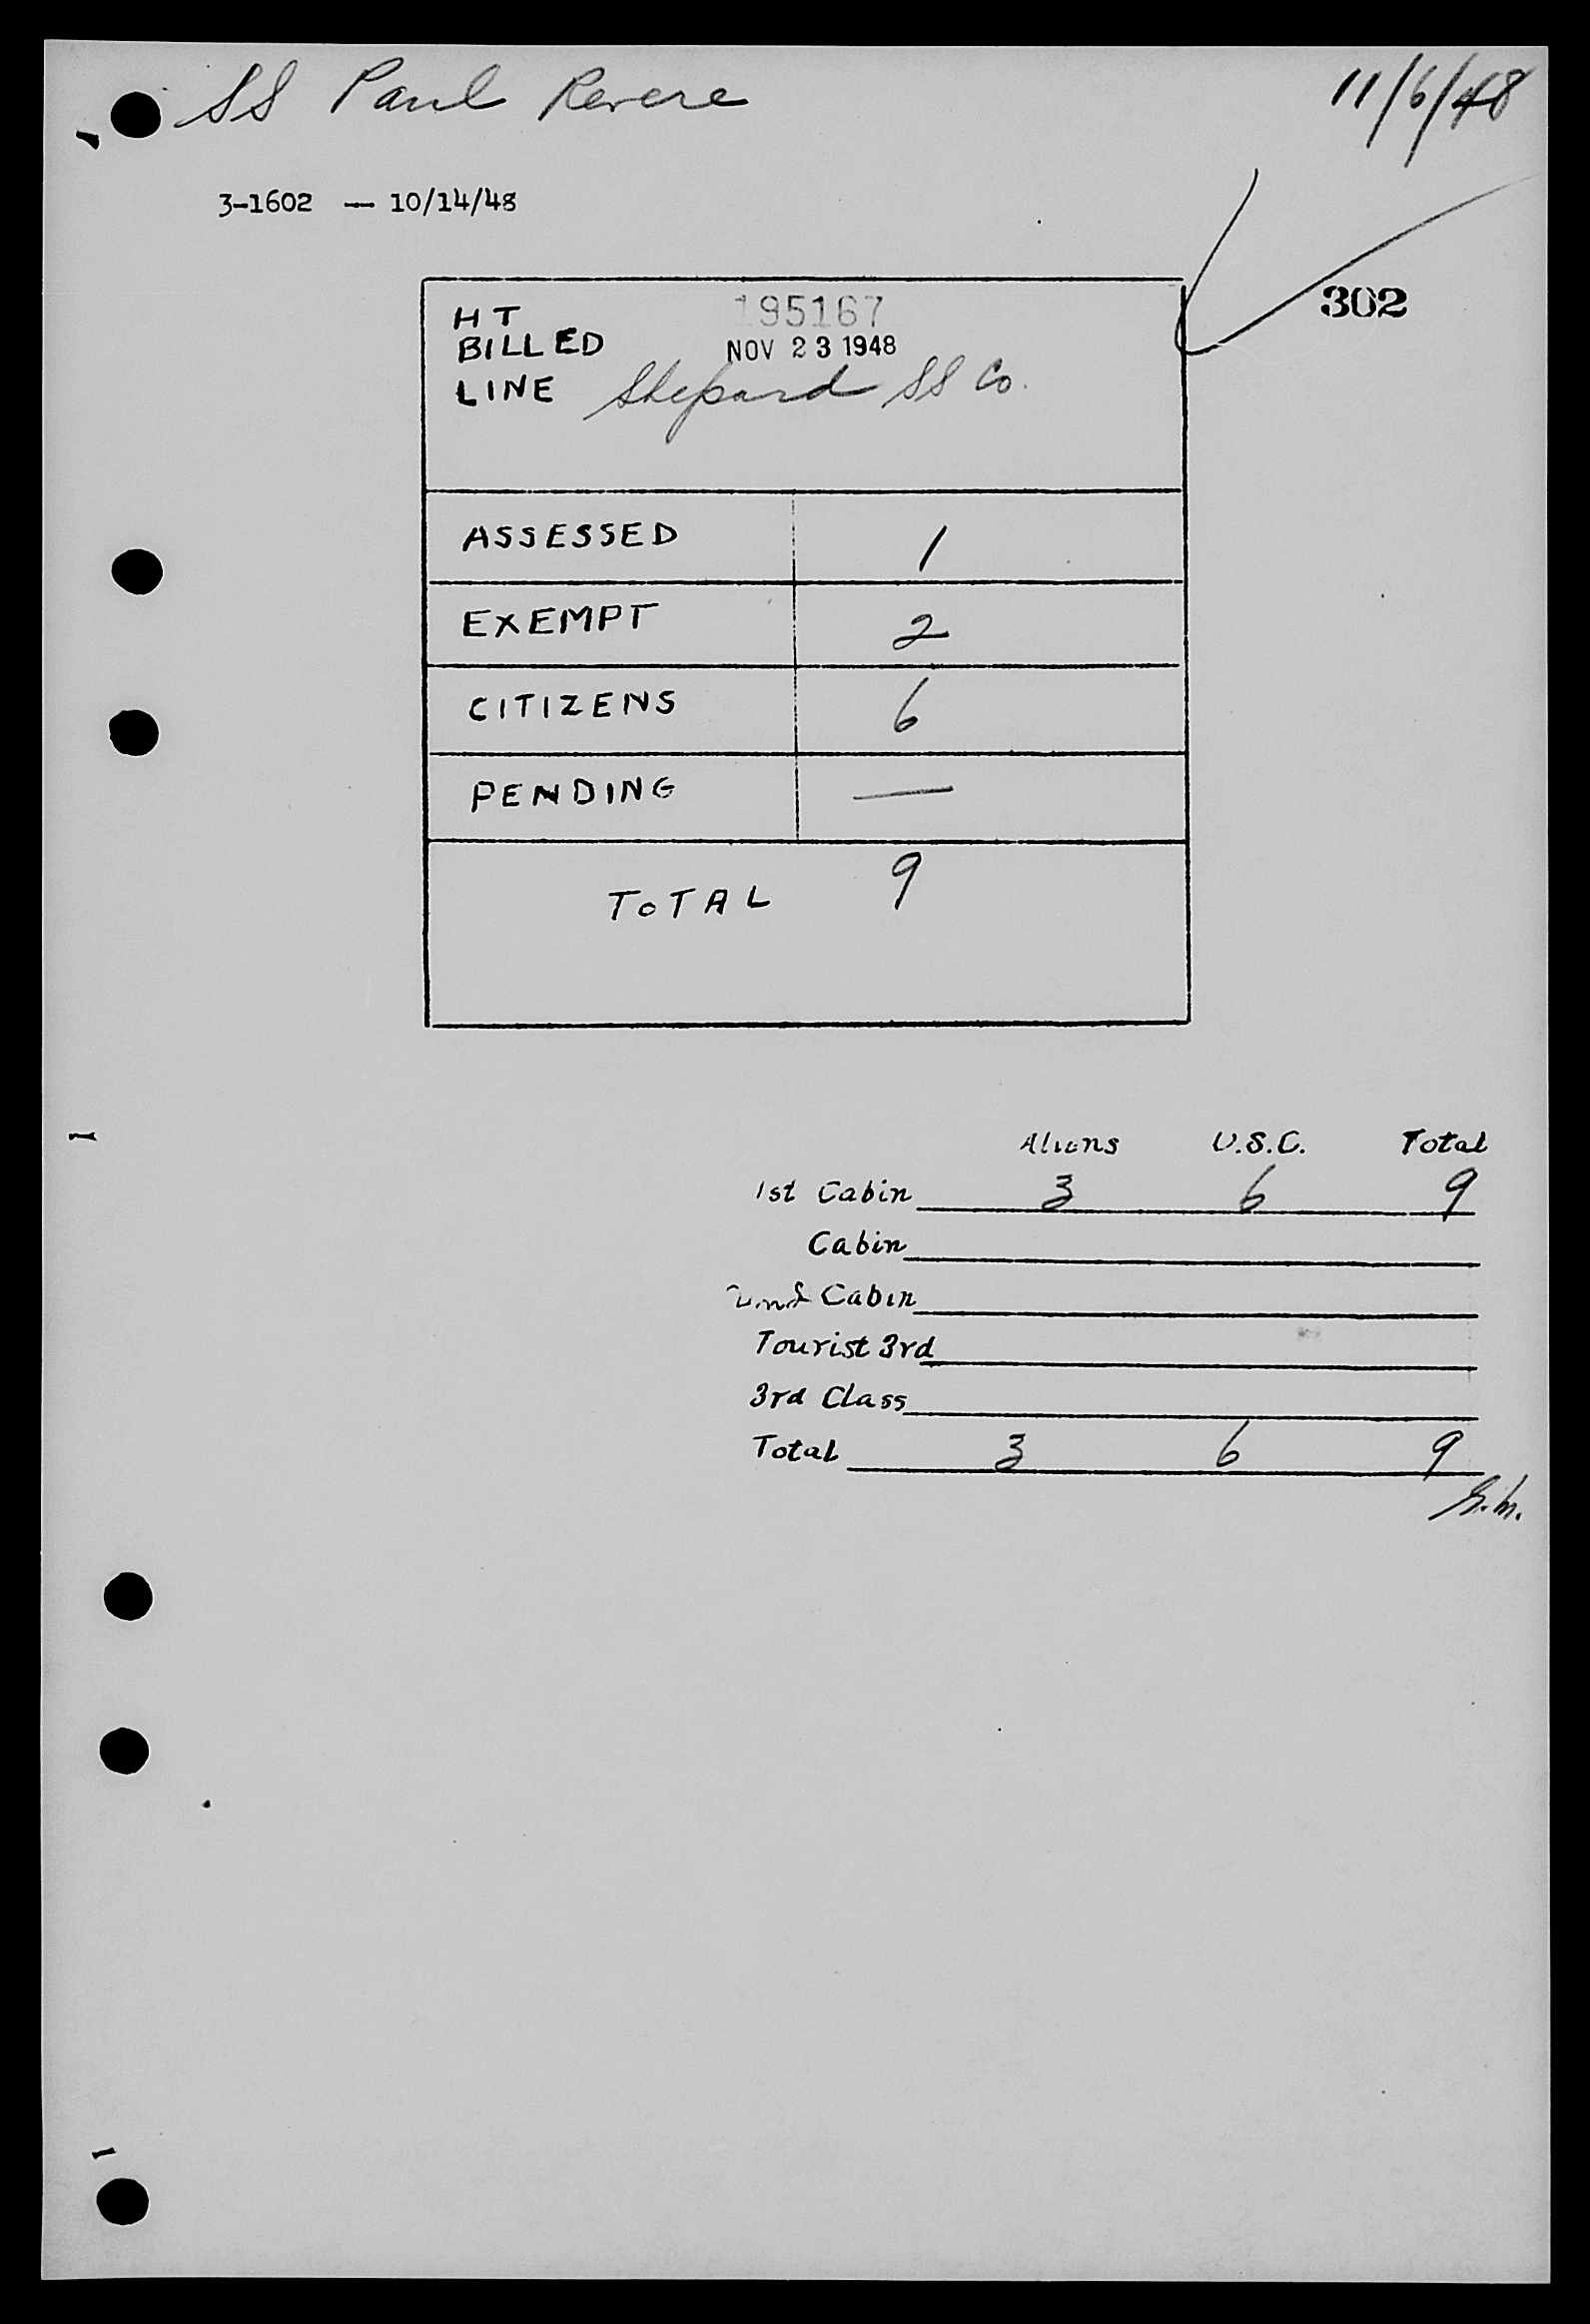 SS Paul Revere 11/6/48
3-1602 — 10/14/48
302
HT 195167
BILLED NOV 23 1948
LINE Shepard SS Co.
ASSESSED 1
EXEMPT 2
CITIZENS 6
PENDING —
TOTAL 9
Aliens U.S.C. Total
1st Cabin 3 6 9
Cabin
Cabin
Tourist 3rd
3rd Class
Total 3 6 9